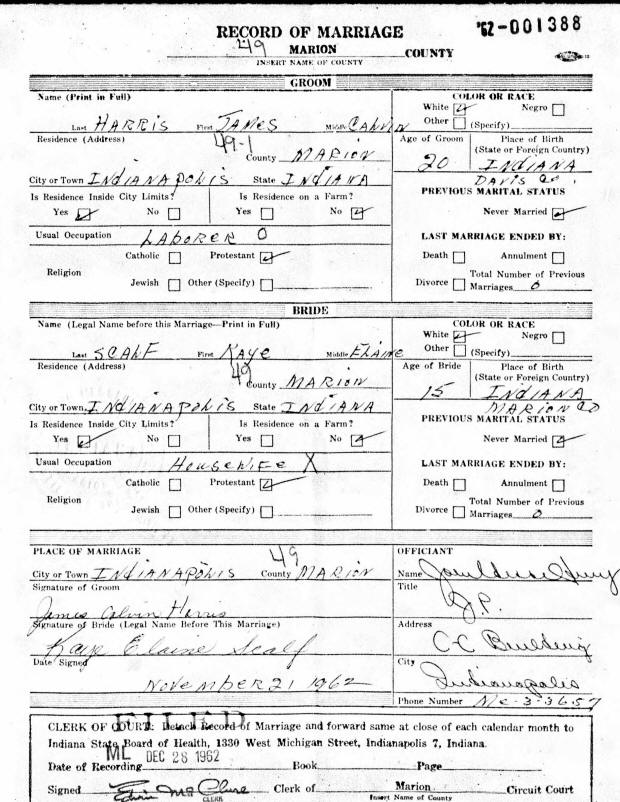 RECORD OF MARRIAGE
'62-001388
49 MARION COUNTY
INSERT NAME OF COUNTY
GROOM
Name (Print in Full)
Last HARRIS First JAMES Middle CALVIN
COLOR OR RACE
White Negro
Other (Specify)
Residence (Address)
49-1
County MARION
Age of Groom
20
Place of Birth
(State or Foreign Country)
INDIANA
DAVIS CO.
City or Town INDIANAPOLIS State INDIANA
Is Residence Inside City Limits?
Yes No
Is Residence on a Farm?
Yes No
PREVIOUS MARITAL STATUS
Never Married
Usual Occupation LABORER O
LAST MARRIAGE ENDED BY:
Death Annulment
Divorce Total Number of Previous
Marriages 0
Religion
Catholic Protestant
Jewish Other (Specify)
BRIDE
Name (Legal Name before this Marriage—Print in Full)
Last SCALF First KAYE Middle ELAINE
COLOR OR RACE
White Negro
Other (Specify)
Residence (Address)
49
County MARION
Age of Bride
15
Place of Birth
(State or Foreign Country)
INDIANA
MARION CO
City or Town INDIANAPOLIS State INDIANA
Is Residence Inside City Limits?
Yes No
Is Residence on a Farm?
Yes No
PREVIOUS MARITAL STATUS
Never Married
Usual Occupation HOUSEWIFE X
LAST MARRIAGE ENDED BY:
Death Annulment
Divorce Total Number of Previous
Marriages 0
Religion
Catholic Protestant
Jewish Other (Specify)
PLACE OF MARRIAGE
49
City or Town INDIANAPOLIS County MARION
Signature of Groom
James Calvin Harris
Signature of Bride (Legal Name Before This Marriage)
Kaye Elaine Scalf
Date Signed
NOVEMBER 21 1962
OFFICIANT
Name
Title
J.P.
Address
C-C Building
City
Indianapolis
Phone Number Me-3-3657
FILED
CLERK OF COURT: Detach Record of Marriage and forward same at close of each calendar month to
Indiana State Board of Health, 1330 West Michigan Street, Indianapolis 7, Indiana.
ML DEC 28 1962
Date of Recording Book Page
Signed Edwin McClure Clerk of Marion Circuit Court
CLERK Insert Name of County